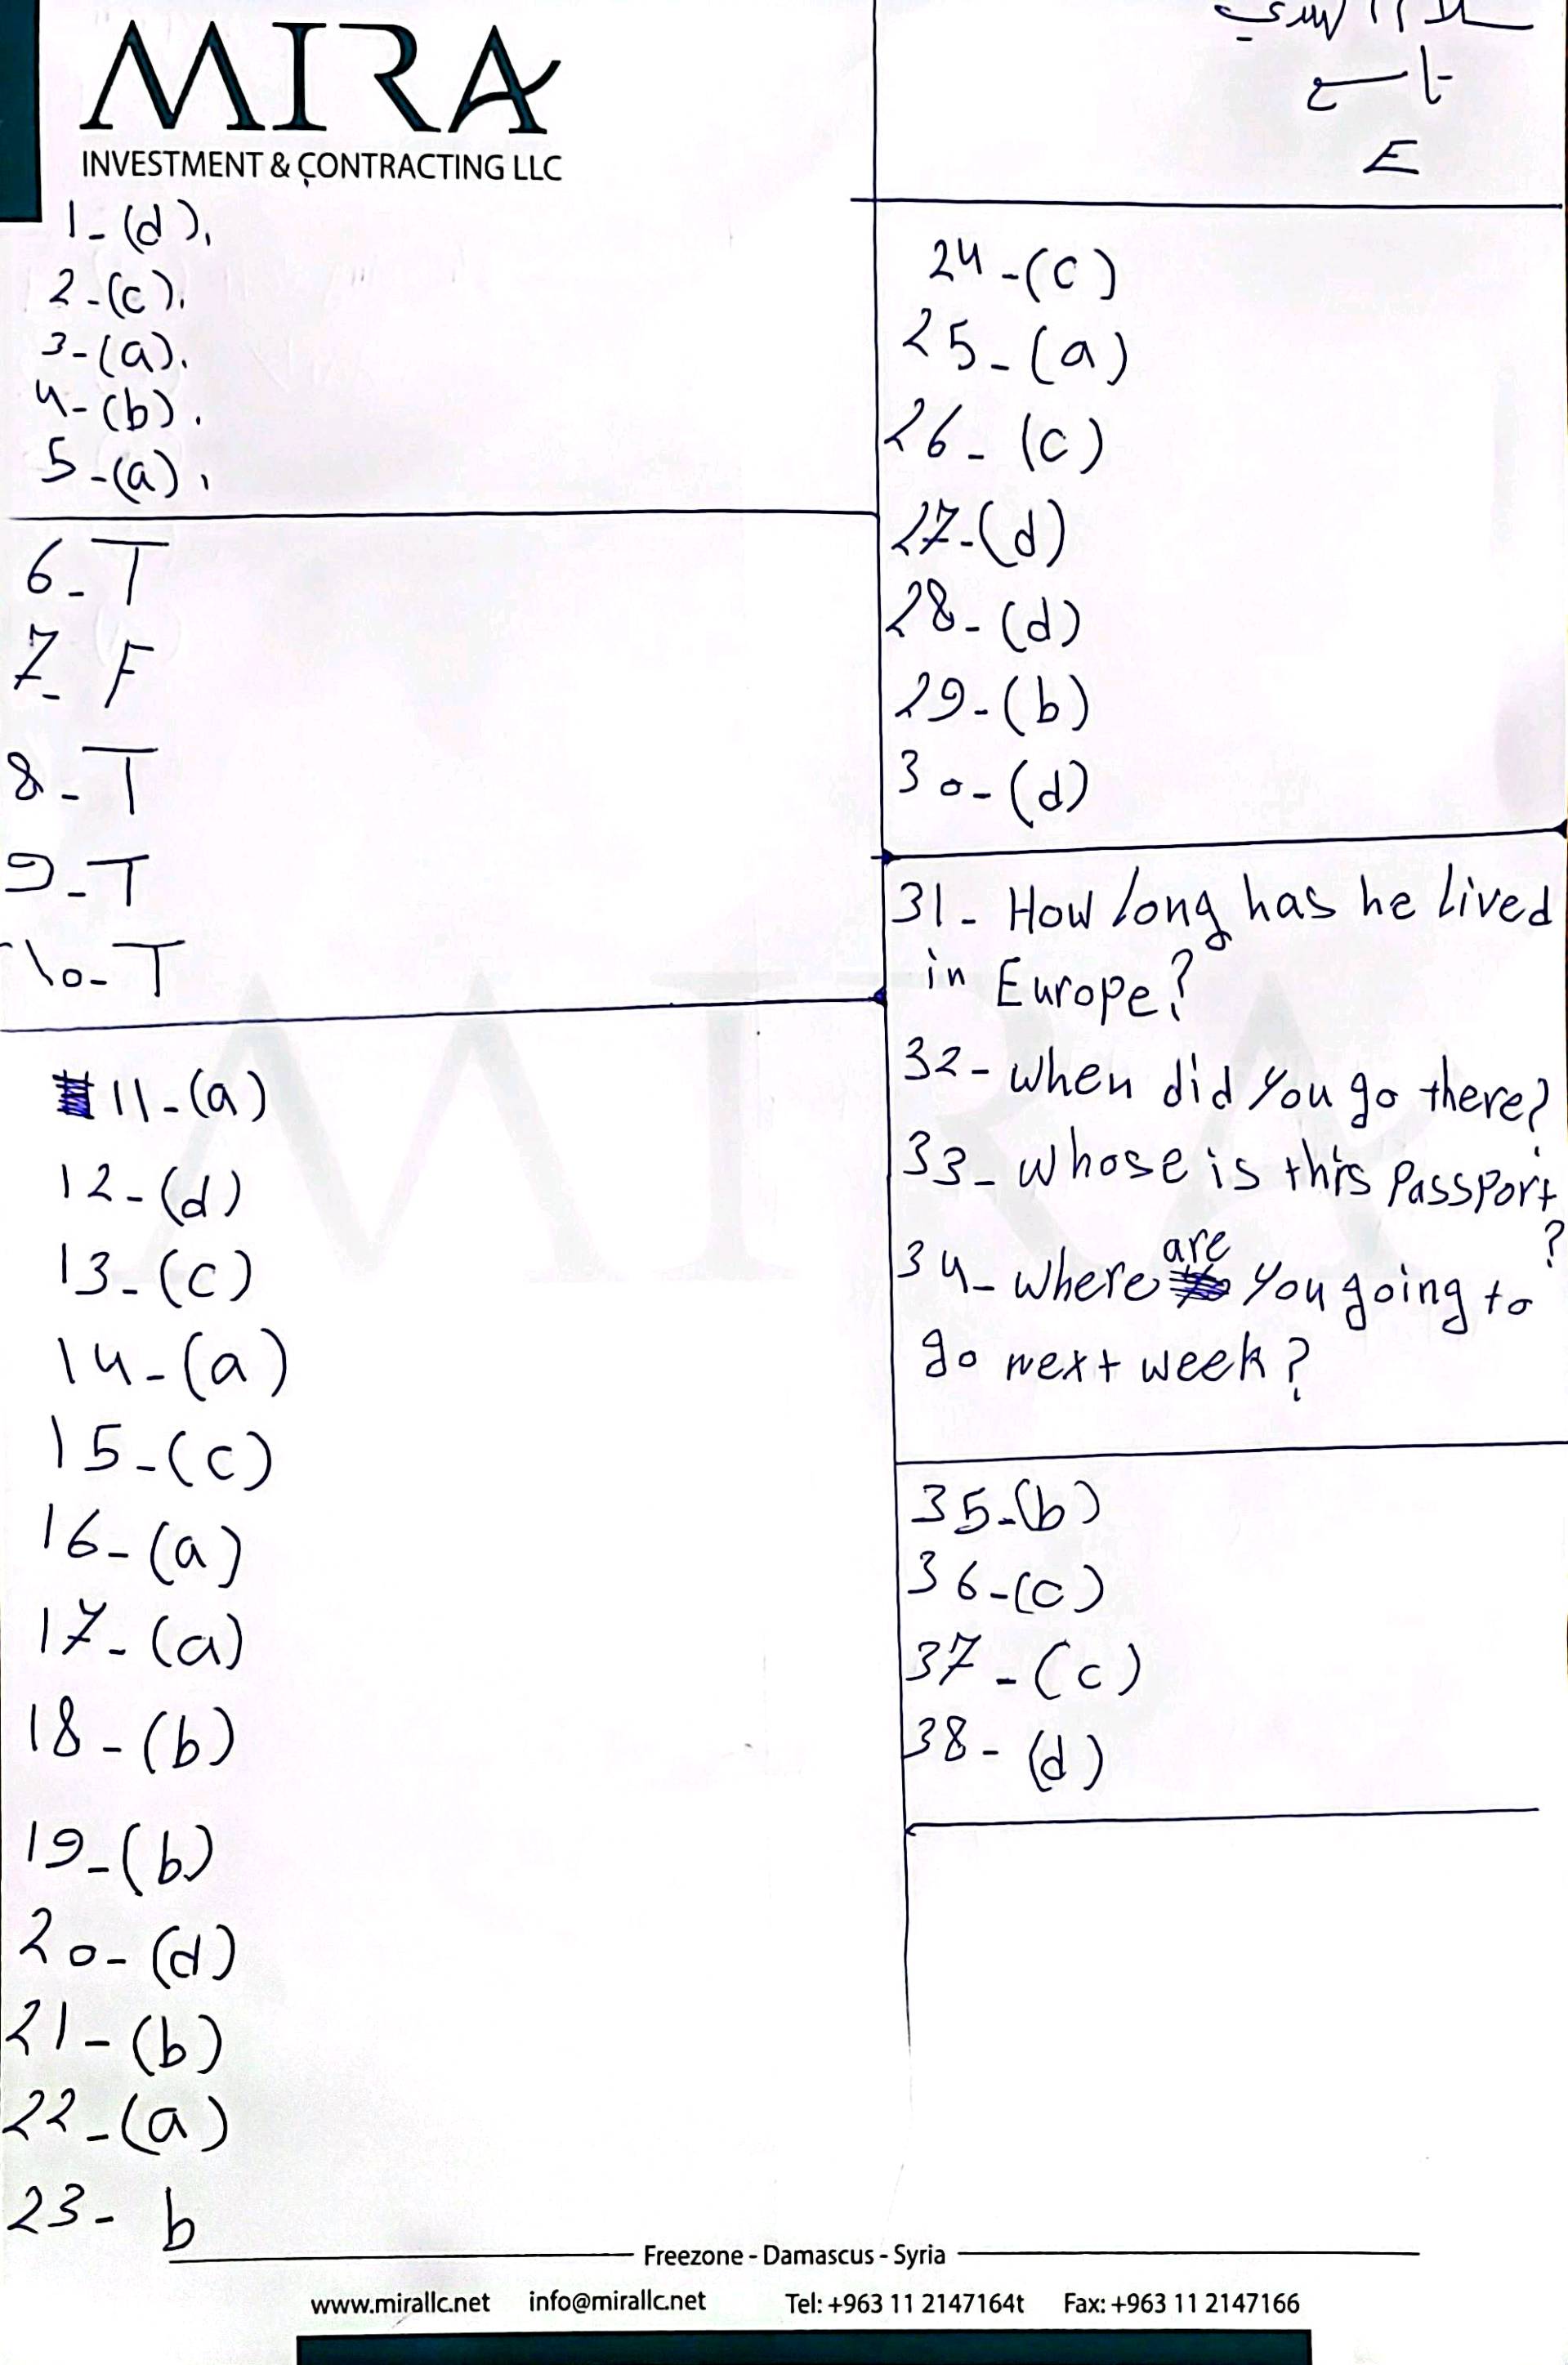 MIRA
INVESTMENT & CONTRACTING LLC
1-(d).
2-(c).
3-(a).
4-(b).
5-(a).
6-T
7-F
8-T
9-T
10-T
11-(a)
12-(d)
13-(c)
14-(a)
15-(c)
16-(a)
17-(a)
18-(b)
19-(b)
20-(d)
21-(b)
22-(a)
23- b
تاسع
E
24-(c)
25-(a)
26-(c)
27-(d)
28-(d)
29-(b)
30-(d)
31- How long has he lived
in Europe?
32- when did you go there?
33- whose is this Passport
?
34- where are you going to
go next week?
35-(b)
36-(c)
37-(c)
38-(d)
MIRA
Freezone - Damascus - Syria
www.mirallc.net info@mirallc.net Tel: +963 11 2147164t Fax: +963 11 2147166